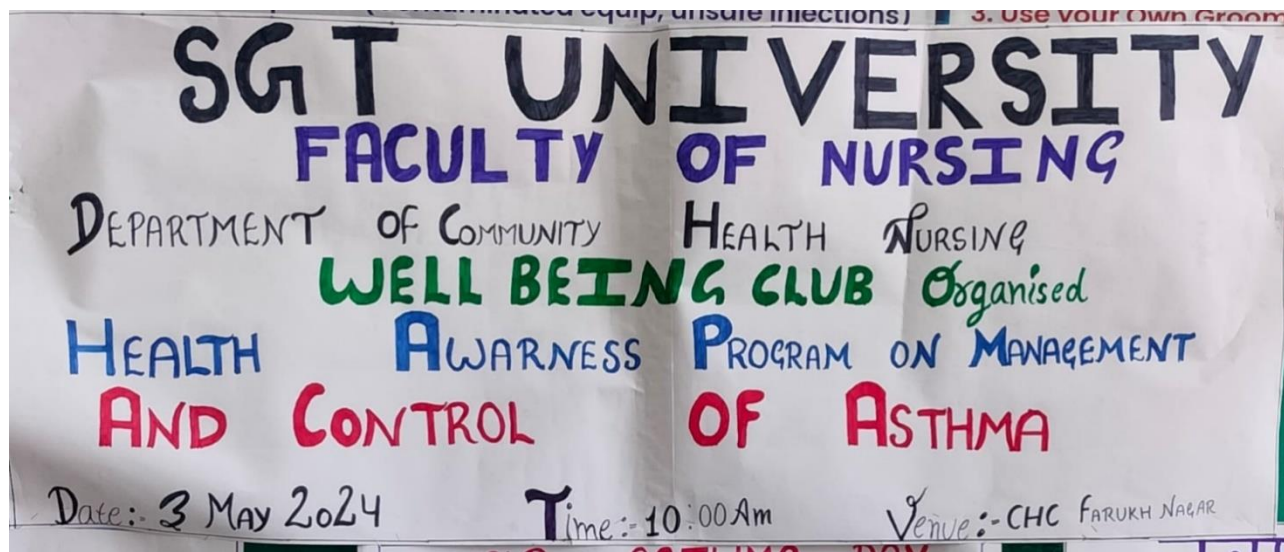 equip, unsafe injections)
3. Use Your Own Groom
SGT UNIVERSITY
FACULTY OF NURSING
DEPARTMENT OF COMMUNITY HEALTH NURSING
WELL BEING CLUB Organised
HEALTH AWARNESS PROGRAM ON MANAGEMENT
AND CONTROL OF ASTHMA
Date:- 3 MAY 2024 Time:- 10:00 Am Venue:- CHC FARUKH NAGAR
ASTHMA DAY